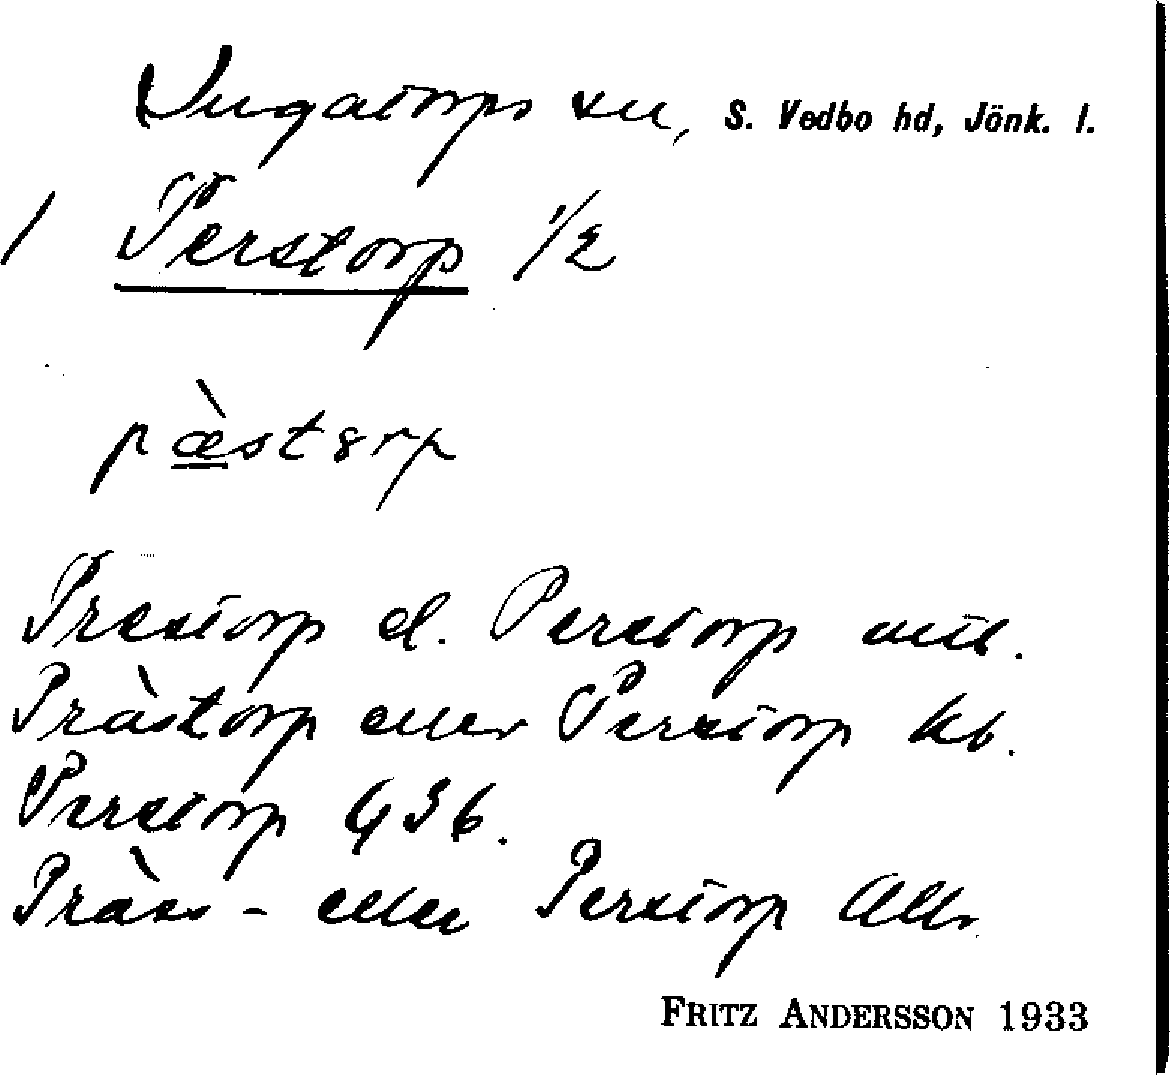 Ingatorps sn, S. Vedbo hd, Jönk. l.
1 Perstorp 1/2
pæ̀storp
Prestorp el. Perstorp mtl.
Prästorp eller Perstorp kb.
Perstorp G 36.
Präss- eller Perstorp Allm
FRITZ ANDERSSON 1933